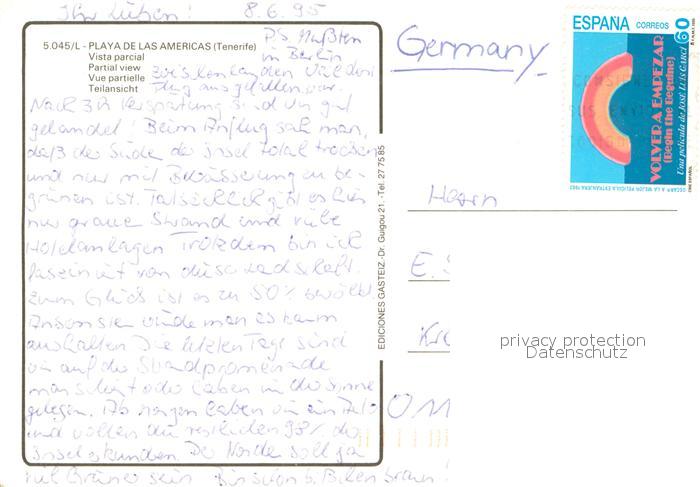 Ihr Lieben! 8.6.95
P.S. Mußten
in Berlin
zwischenlanden, weil der
Flug ausgefallen war.
5.045/L - PLAYA DE LAS AMERICAS (Tenerife)
Vista parcial
Partial view
Vue partielle
Teilansicht
Nach 3h Verspätung sind wir gut
gelandet! Beim Anflug sah man,
daß der Süden der Insel total trocken
und nur mit Bewässerung zu be-
grünen ist. Tatsächlich gibt es hier
nur grauen Strand und viele
Hotelanlagen. Trotzdem bin ich
fasziniert von dieser Landschaft.
Zum Glück ist es zu 50% bewölkt.
Ansonsten würde man es kaum
aushalten. Die letzten Tage sind
wir auf der Strandpromenade
marschiert oder haben in der Sonne
gelegen. Ab morgen haben wir ein Auto
und wollen die restlichen 98% der
Insel erkunden. Der Norden soll ja
viel grüner sein. Bin schon b. braun!
EDICIONES GASTEIZ.-Dr. Guigou 21.-Tel. 27 75 85
Germany
Herrn
E.
Kre
011
ESPAÑA CORREOS 60
VOLVER A EMPEZAR
(Begin the Beguine)
Una película de JOSÉ LUIS GARCI
OSCAR A LA MEJOR PELICULA EXTRANJERA 1982
CINE ESPAÑOL
privacy protection
Datenschutz